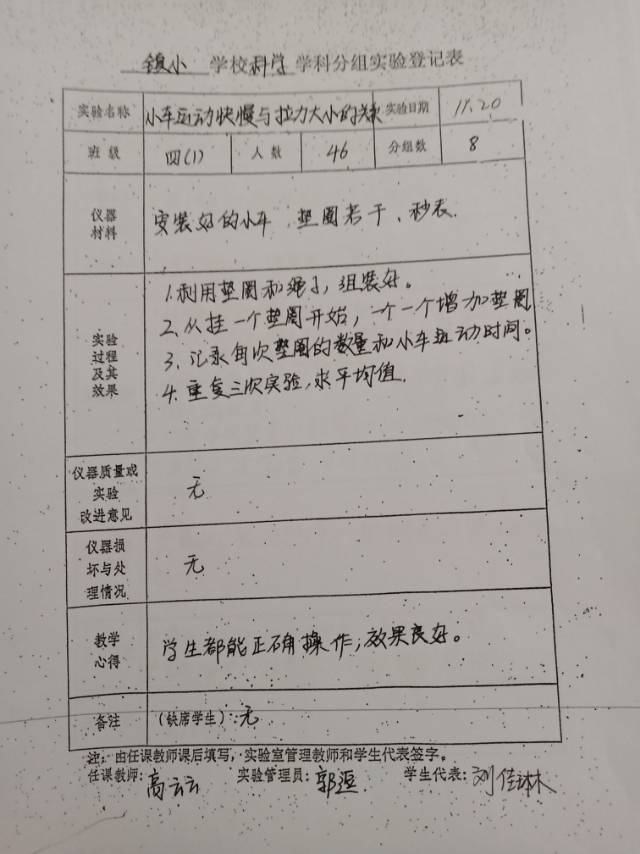 镇小 学校 科学 学科分组实验登记表
实验名称 小车运动快慢与拉力大小的关系 实验日期 11.20
班 级 四(1) 人 数 46 分组数 8
仪器
材料
安装好的小车、垫圈若干、秒表.
实验
过程
及其
效果
1.利用垫圈和绳子,组装好。
2.从挂一个垫圈开始,一个一个增加垫圈
3.记录每次垫圈的数量和小车运动时间。
4.重复三次实验,求平均值.
仪器质量或
实验
改进意见
无
仪器损
坏与处
理情况
无
教学
心得
学生都能正确操作,效果良好。
备注 (缺席学生):无
注:由任课教师课后填写,实验室管理教师和学生代表签字。
任课教师:高云云 实验管理员:郭 学生代表:刘佳琳